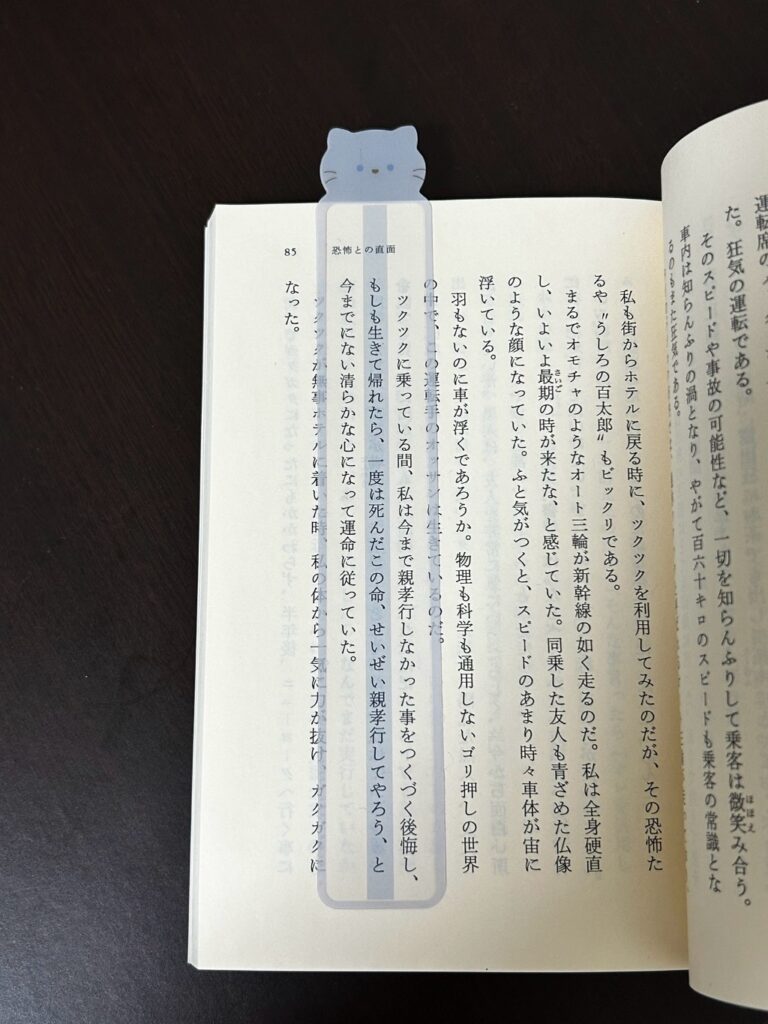 運転席の
た。狂気の運転である。
そのスピードや事故の可能性など、一切を知らんふりして乗客は微笑み合う。
ほほえ
車内は知らんふりの渦となり、やがて百六十キロのスピードも乗客の常識とな
るのもまた狂気である。
85
恐怖との直面
私も街からホテルに戻る時に、ツクツクを利用してみたのだが、その恐怖た
るや〝うしろの百太郎〟もビックリである。
まるでオモチャのようなオート三輪が新幹線の如く走るのだ。私は全身硬直
し、いよいよ最期の時が来たな、と感じていた。同乗した友人も青ざめた仏像
さいご
のような顔になっていた。ふと気がつくと、スピードのあまり時々車体が宙に
浮いている。
羽もないのに車が浮くであろうか。物理も科学も通用しないゴリ押しの世界
の中で、この運転手のオッサンは生きているのだ。
ツクツクに乗っている間、私は今まで親孝行しなかった事をつくづく後悔し、
もしも生きて帰れたら、一度は死んだこの命、せいぜい親孝行してやろう、と
今までにない清らかな心になって運命に従っていた。
ツクツクが無事ホテルに着いた時、私の体から一気に力が抜け、ガクガクに
なった。